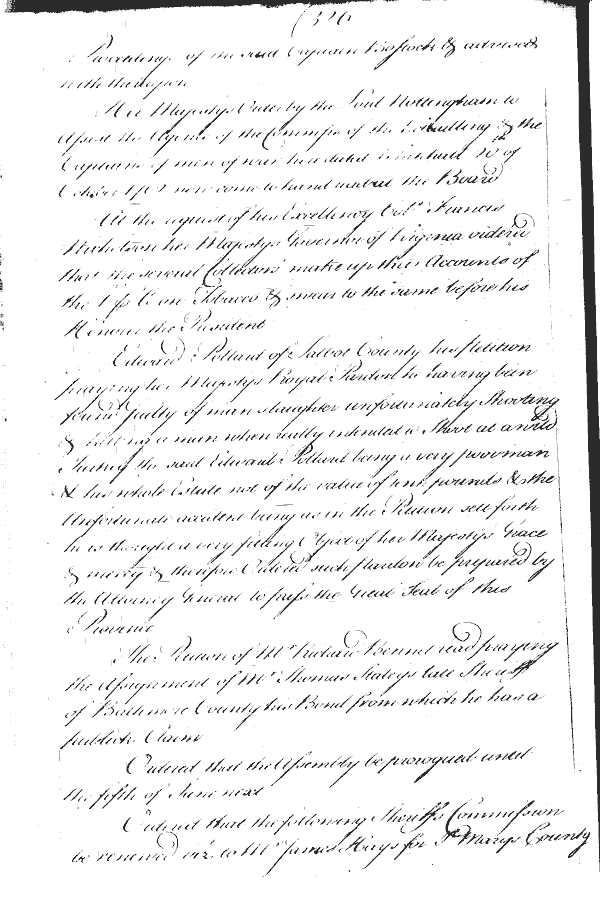 (326
Proceedings of the said Captain Bostock & advised
with thereupon
Her Majestys Order by the Lord Nottingham to
Assist the Agents of the Commrs of the Victualling & the
Captains of men of Warr here dated Whitehall 10th of
October 1702 now come to hand under the Board
At the request of his Excellency Colo Francis
Nicholson her Majestys Governor of Virginia ordered
that the several Collectors make up their Accounts of
the 1 ₱ C on Tobacco & swear to the same before his
Honour the President
Edward Pollard of Talbot County his Petition
praying her Majestys Royal Pardon he having been
found guilty of man slaughter unfortunately Shooting
& killing a man when really intended to Shoot at a wild
Turkey the said Edward Pollard being a very poor man
& his whole Estate not of the value of pounds & the
Unfortunate accident being as in the Petition sett forth
he is thought a very fitting Object of her Majestys Grace
& mercy & therefore Ordered such pardon be prepared by
the Attorney General to pass the Great Seal of this
Province
The Petition of Mr Richard Bennet read praying
the Assignment of Mr Thomas Staleys late Sheriff
of Baltimore County his Bond from which he has a
publick Claime
Ordered that the Assembly be prorogued until
the fifth of June next
Ordered that the following Sheriffs Commission
be renewed viz to Mr James Hays for St Marys County